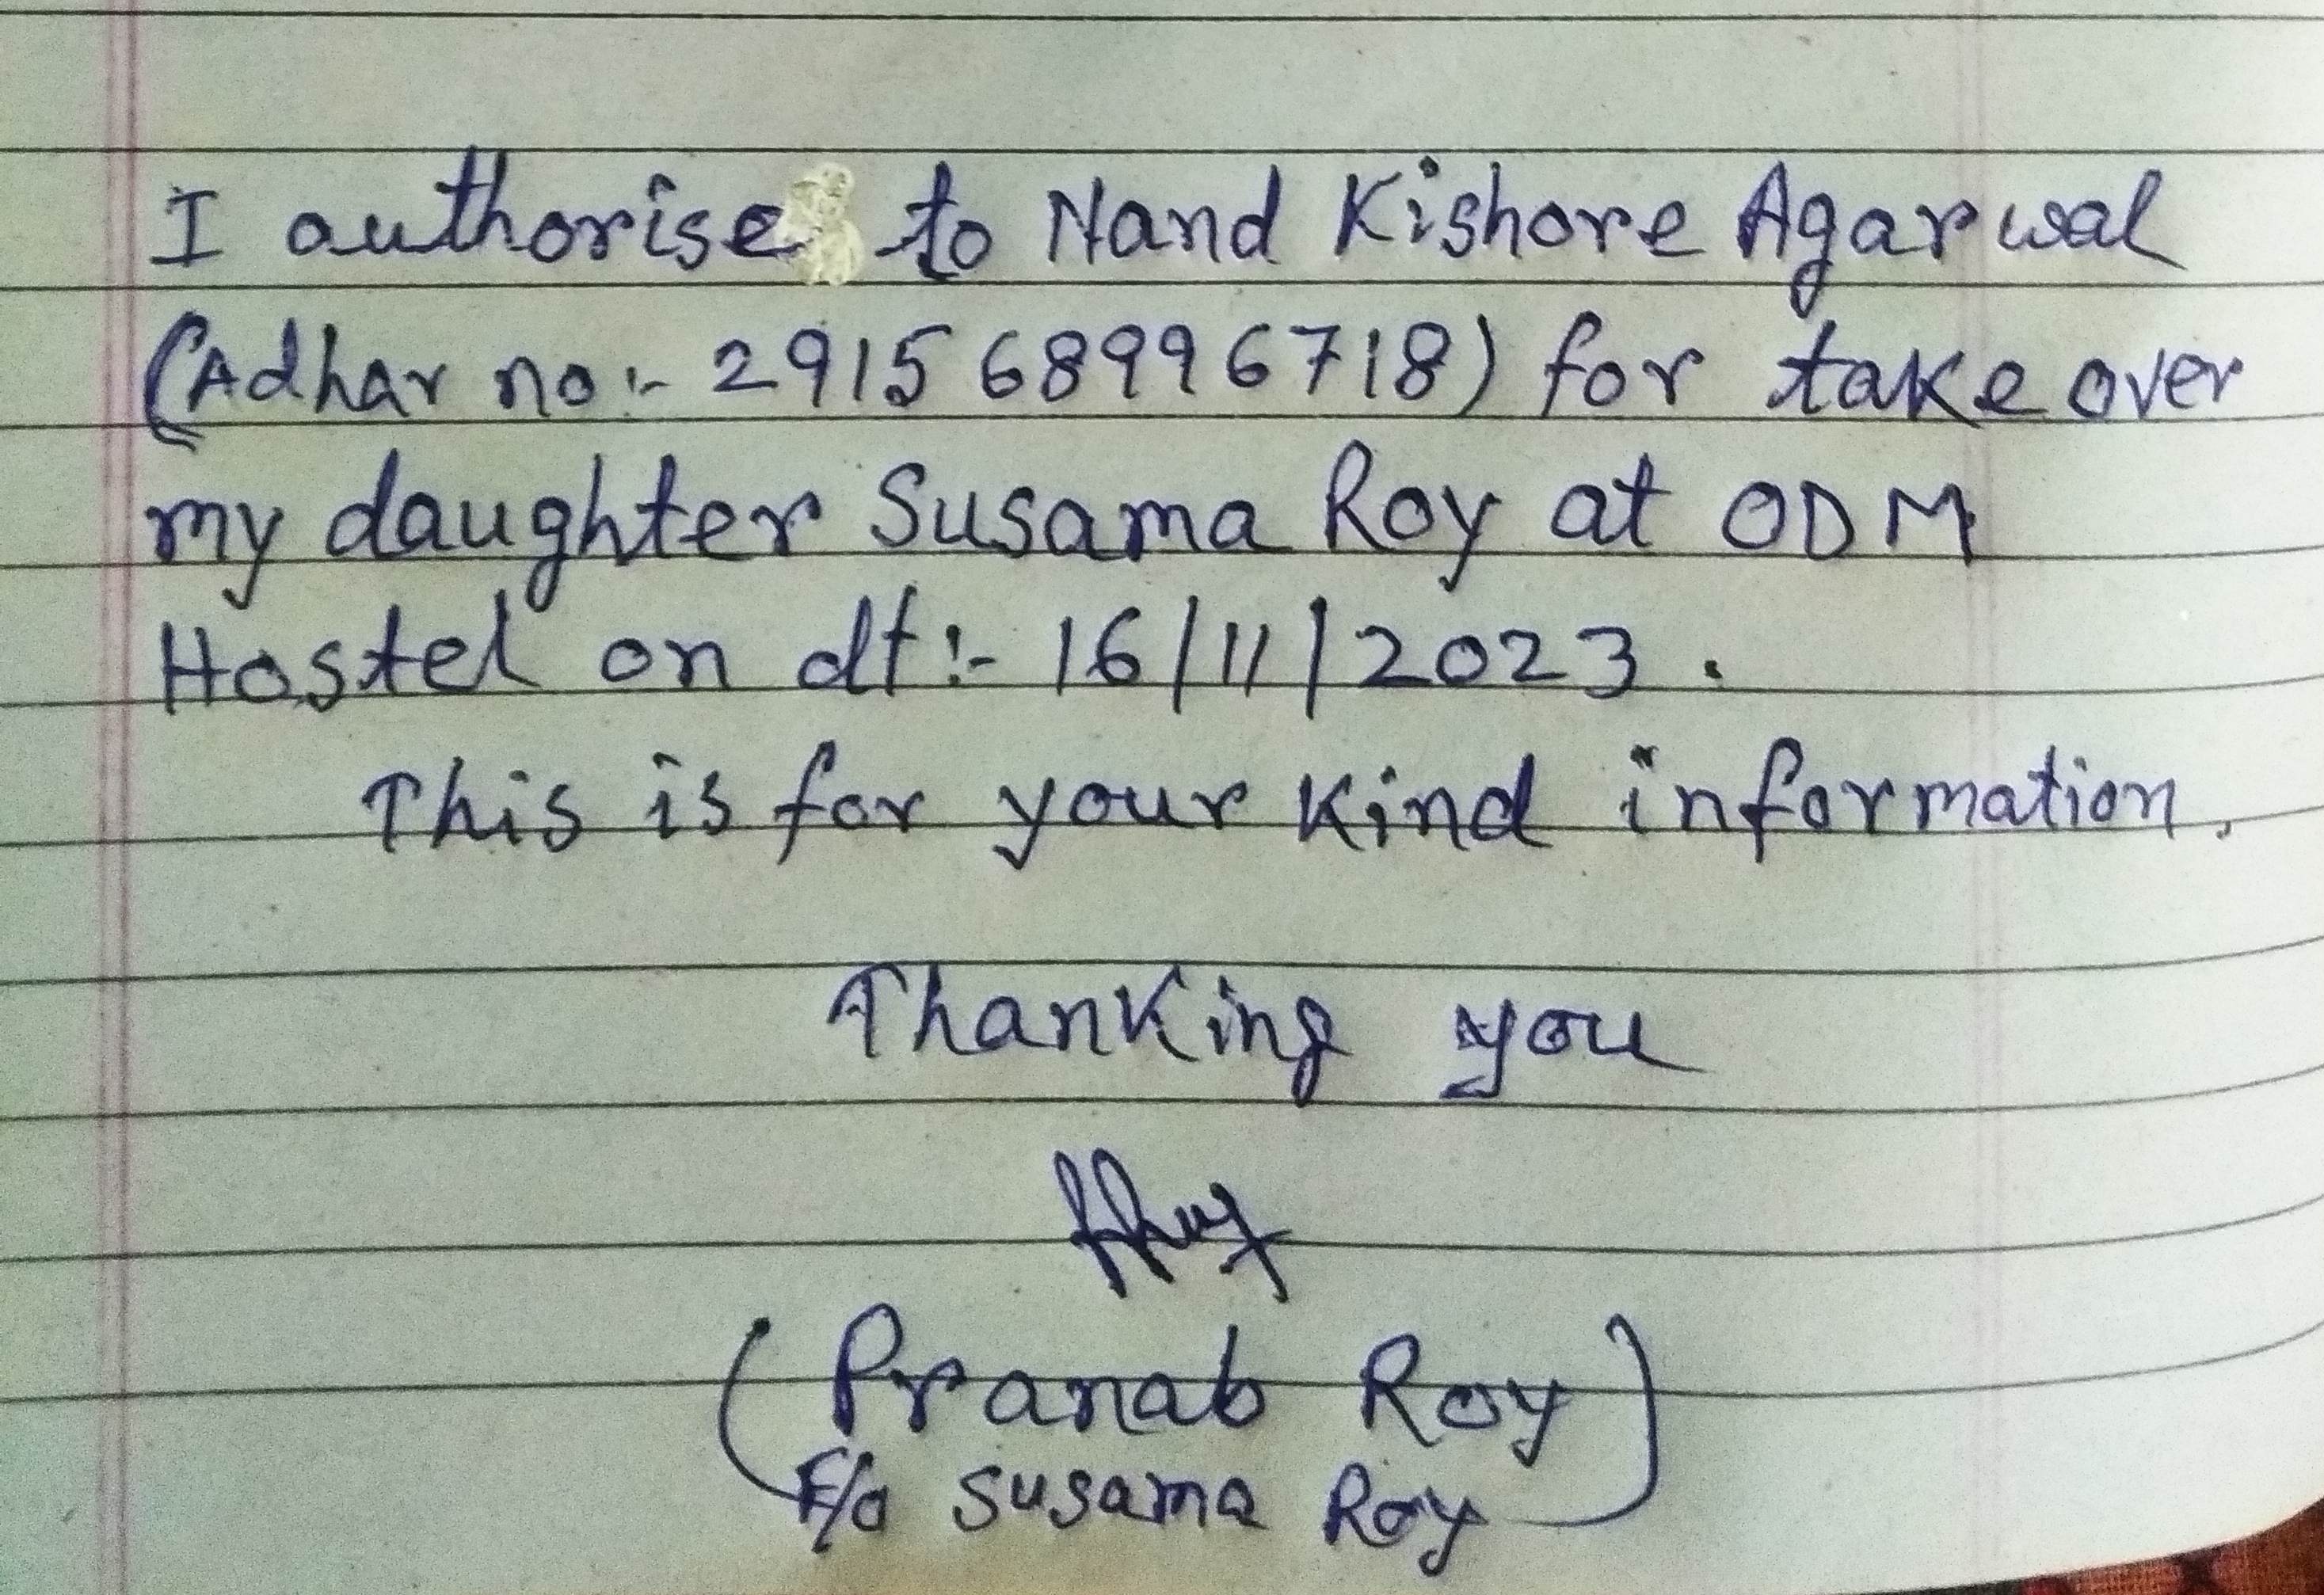 I authorise to Nand Kishore Agarwal
(Adhar no:- 2915 68996718) for take over
my daughter Susama Roy at ODM
Hostel on dt:- 16/11/2023.
This is for your kind information.
Thanking you
(Pranab Roy)
F/o Susama Roy